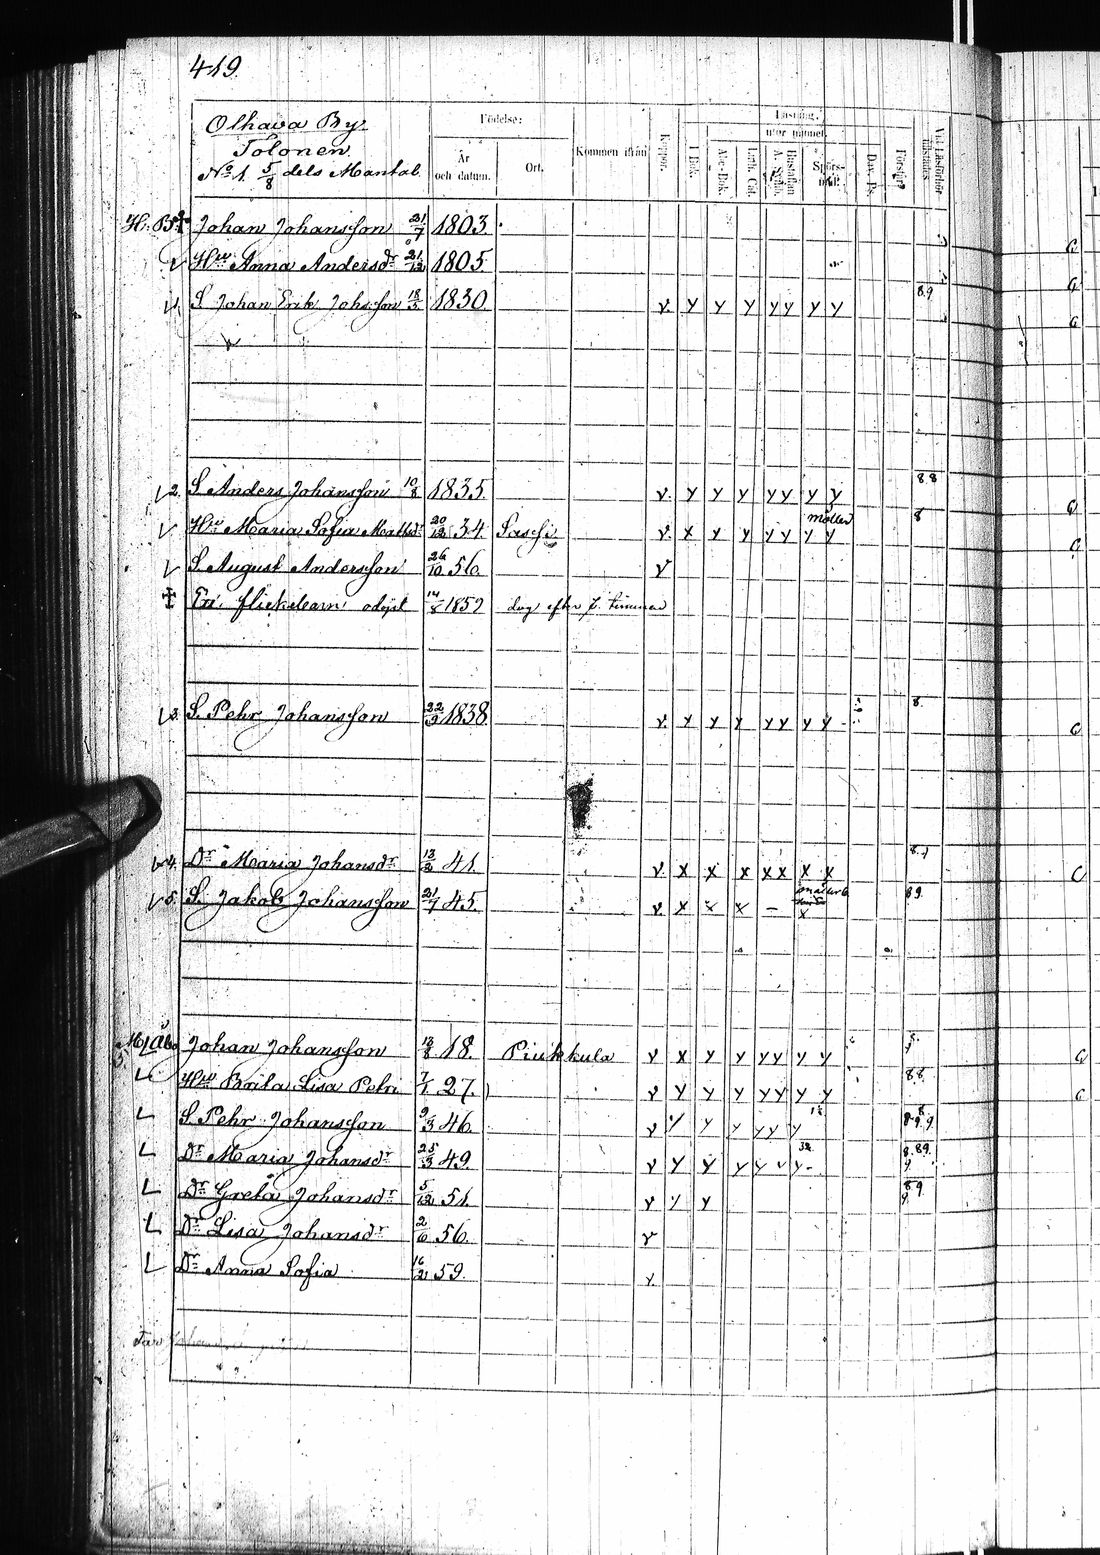 419.
Olhava By.
Tolonen.
No 1. 5/8 dels Mantal.
Födelse:
År och datum.
Ort.
Kommen ifrån
Koppor.
Läsning.
utor minnet.
I Bok.
Abc-Bok.
Luth. Cat.
Hustaflan A. Symb.
Spörs-mål.
Dav. Ps.
Förstår
Johan Johansson 21/7 1803
Hu Anna Andersdr 21/12 1805.
1. S. Johan Erik Johsson 18/5 1830 v. y y y y y y y 89
2. S. Anders Johansson 10/8 1835. v. y y y y y y y 88
Hu Maria Sofia Mathsdr 20/12 34. v. x y y y y y y 8
S. August Andersson 26/10 56. v
En flickebarn 14/8 1859 dog efter 7. timmar
3. S. Pehr Johansson 22/3 1838 v. y y y y y y y 8
4. Dr Maria Johansdr 13/2 41. v. x x x x x x x
5. S. Jakob Johansson 21/7 45. v. x x x – x 89.
Johan Johansson 13/8 18. Piukkula v x y y y y y y
Hu Brita Lisa Pehri 7/1 27. v y y y y y y y 88.
S. Pehr Johansson 9/3 46. v y y y y y y
Dr Maria Johansdr 25/3 49. v y y y y v y 8.89.
Dr Greta Johansdr 5/12 51. v y y 89.
Dr Lisa Johansdr 2/6 56. v
Dr Anna Sofia 16/2 59. v